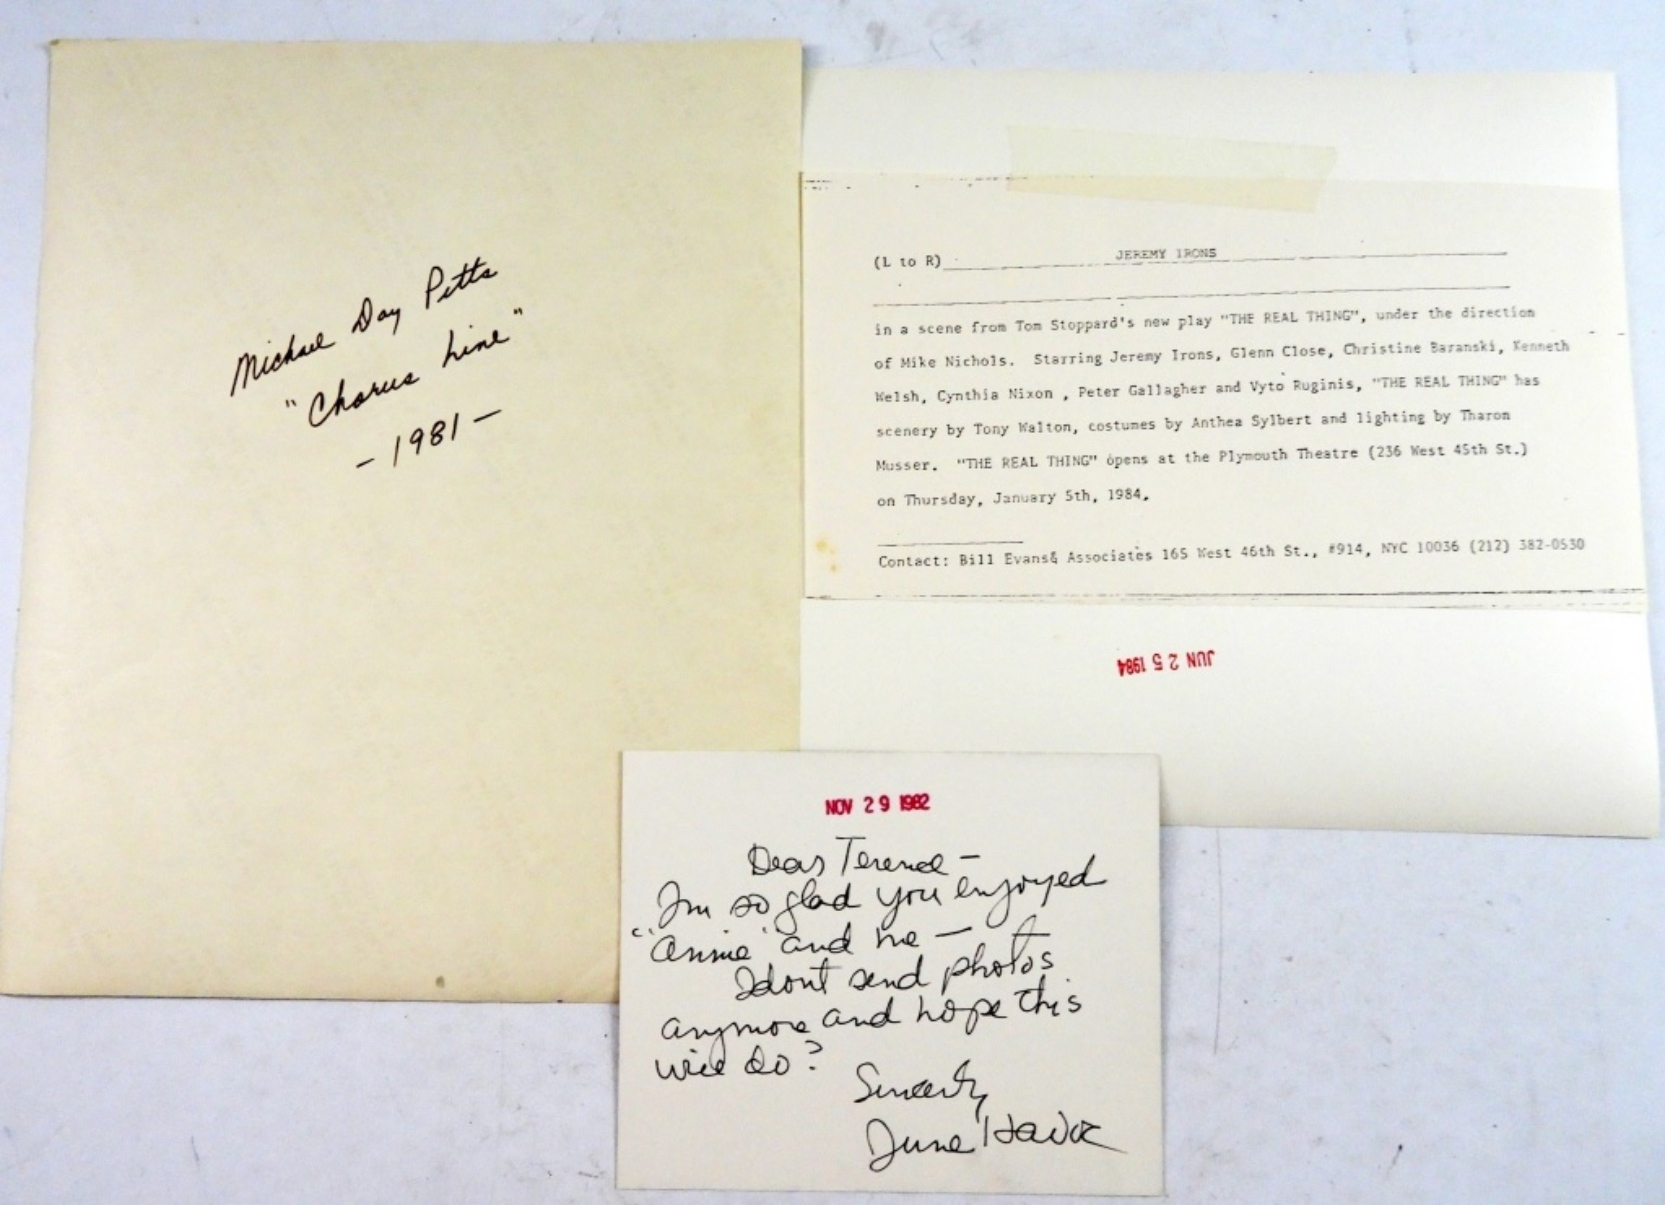 Michael Day Pitts
"Chorus Line"
- 1981 -
(L to R) JEREMY IRONS
in a scene from Tom Stoppard's new play "THE REAL THING", under the direction
of Mike Nichols. Starring Jeremy Irons, Glenn Close, Christine Baranski, Kenneth
Welsh, Cynthia Nixon , Peter Gallagher and Vyto Ruginis, "THE REAL THING" has
scenery by Tony Walton, costumes by Anthea Sylbert and lighting by Tharon
Musser. "THE REAL THING" opens at the Plymouth Theatre (236 West 45th St.)
on Thursday, January 5th, 1984.
Contact: Bill Evans& Associates 165 West 46th St., #914, NYC 10036 (212) 382-0530
JUN 25 1984
NOV 29 1982
Dear Terence -
I'm so glad you enjoyed
"Annie" and me -
I dont send photos
anymore and hope this
will do?
Sincerely
June Havoc